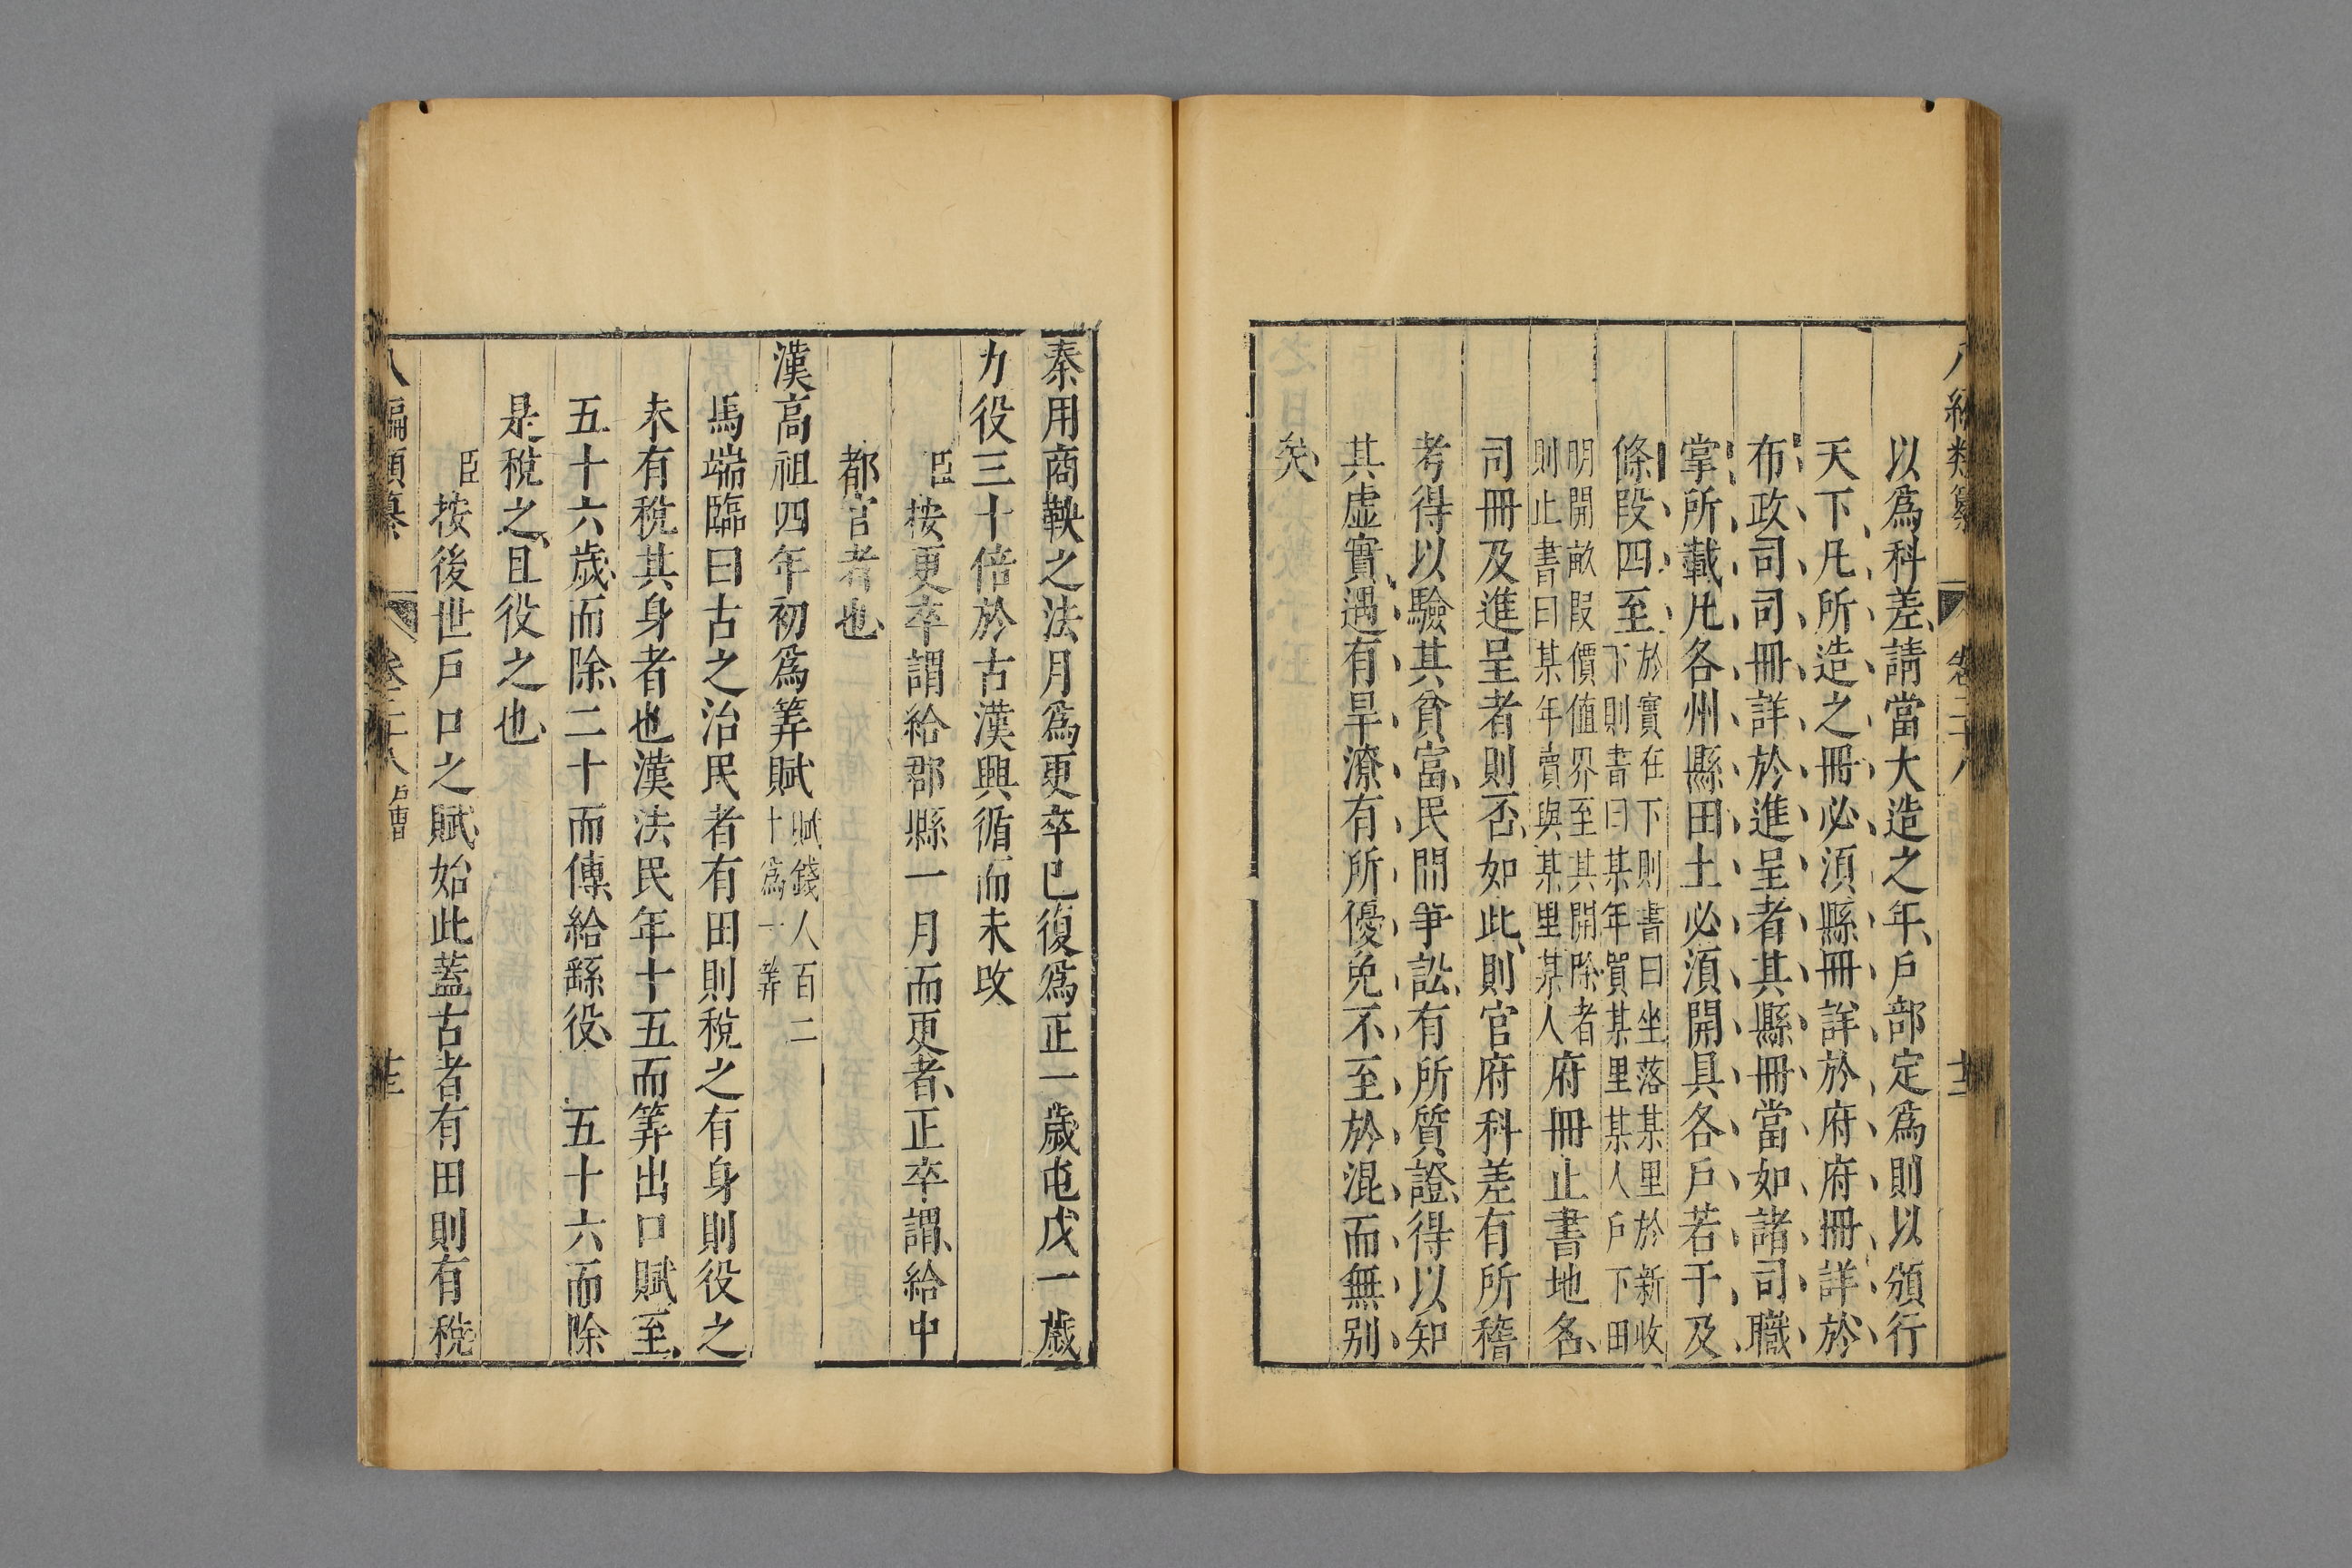 以爲科差請當大造之年戶部定爲則以頒行
天下凡所造之冊必湏縣冊詳於府府冊詳於
布政司司冊詳於進呈者其縣冊當如諸司職
掌所載凡各州縣田土必湏開具各戶若干及
條段四至於實在下則書曰坐落某里於新收
下則書曰某年買某里某人戶下田
明開畝段價値界至其開除者
則止書曰某年賣與某里某人府冊止書地名
司冊及進呈者則否如此則官府科差有所稽
考得以驗其貧富民間爭訟有所質證得以知
其虛實遇有旱潦有所優免不至於混而無別
矣
秦用商鞅之法月爲更卒已復爲正一歲屯戍一歲
力役三十倍於古漢興循而未改
臣按更卒謂給郡縣一月而更者正卒謂給中
都官者也
漢高祖四年初爲筭賦賦錢人百二
十爲一筭
馬端臨曰古之治民者有田則稅之有身則役之
未有稅其身者也漢法民年十五而筭出口賦至
五十六歲而除二十而傅給繇役五十六而除
是稅之且役之也
臣按後世戶口之賦始此蓋古者有田則有稅
八編類纂 卷二十八 戶曹